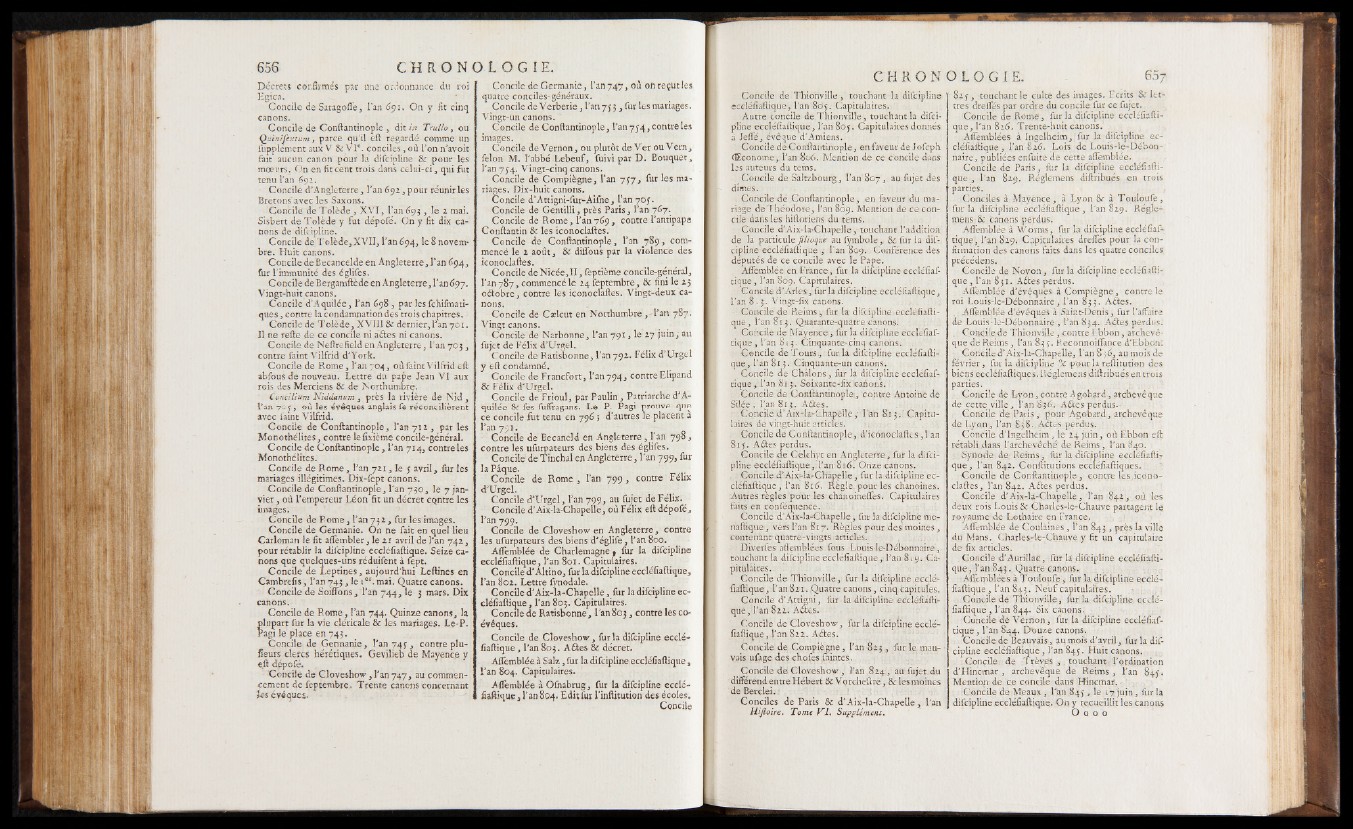 656 CHRONOLOGIE.
Décrets confirmés par une ordonnance du roi
Egica.
Concile de Saragoſſe, l'an 691. On y fit cinq
canons.
Concile de Conſtantinople, dit in Trullo, ou
Quiniſextum, parce qu'il eſt regardé comme un
ſupplément aux V & VIe. conciles, où l'on n'avoit
fait aucun canon pour la diſcipline & pour les
mœurs. On en fit cent trois dans celui-ci, qui fut
tenu l'an 692.
Concile d'Angleterre, l'an 692, pour réunir les
Bretons avec les Saxons.
Concile de Tolède, XVI, l'an 693, le 2 mai.
Sisbert de Tolède y fut dépoſé. On y fit dix ca-
nons de diſcipline.
Concile de Tolède, XVII, l'an 694, le 8 novem-
bre. Huit canons.
Concile de Becancelde en Angleterre, l'an 694,
ſur l'immunité des égliſes.
Concile de Bergamſtède en Angleterre, l'an 697.
Vingt-huit canons.
Concile d'Aquilée, l'an 698, par les ſchiſmati-
ques, contre la condamnation des trois chapitres.
Concile de Tolède, XVIII & dernier, l'an 701.
Il ne reſte de ce concile ni actes ni canons.
Concile de Neſtrefield en Angleterre, l'an 703,
contre ſaint Vilfrid d'York.
Concile de Rome, l'an 704, où ſaint Vilfrid eſt
abſous de nouveau. Lettre du pape Jean VI aux
rois des Merciens & de Northumbre.
Concilium Niddanum, près la rivière de Nid,
l'an 705, où les évêques anglais ſe réconcilièrent
avec ſaint Vilfrid.
Concile de Conſtantinople, l'an 712, par les
Monothélites, contre le ſixième concile-général.
Concile de Conſtantinople, l'an 714, contre les
Monothélites.
Concile de Rome, l'an 721, le 5 avril, ſur les
mariages illégitimes. Dix-ſept canons.
Concile de Conſtantinople, l'an 730, le 7 jan-
vier, où l'empereur Léon fit un décret contre les
images.
Concile de Rome, l'an 732, ſur les images.
Concile de Germanie. On ne ſait en quel lieu
Carloman le fit aſſembler, le 21 avril de l'an 742,
pour rétablir la diſcipline eccléſiaſtique. Seize ca-
nons que quelques-uns réduiſent à ſept.
Concile de Leptines, aujourd'hui Leſtines en
Cambreſis, l'an 743, le 1er. mai. Quatre canons.
Concile de Soiſſons, l'an 744, le 3 mars. Dix
canons.
Concile de Rome, l'an 744. Quinze canons, la
plupart ſur la vie cléricale & les mariages. Le P.
Pagi le place en 743.
Concile de Germanie, l'an 745, contre plu-
ſieurs clercs hérétiques. Gevilieb de Mayence y
eſt dépoſé.
Concile de Cloveshow, l'an 747, au commen-
cement de ſeptembre. Trente canons concernant
les évêques.
Concile de Germanie, l'an 747, où on reçut les
quatre conciles-généraux.
Concile de Verberie, l'an 753, ſur les mariages.
Vingt-un canons.
Concile de Conſtantinople, l'an 754, contre les
images.
Concile de Vernon, ou plutôt de Ver ou Vern,
ſelon M. l'abbé Lebeuf, ſuivi par D. Bouquet,
l'an 754. Vingt-cinq canons.
Concile de Compiègne, l'an 757, ſur les ma-
riages. Dix-huit canons.
Concile d'Attigni-ſur-Aiſne, l'an 765.
Concile de Gentilli, près Paris, l'an 767.
Concile de Rome, l'an 769, contre l'antipape
Conſtantin & les iconoclaſtes.
Concile de Conſtantinople, l'an 789, com-
mencé le 2 août, & diſſous par la violence des
iconoclaſtes.
Concile de Nicée, II, ſeptième concile-général,
l'an 787, commencé le 24 ſeptembre, & fini le 23
octobre, contre les iconoclaſtes. Vingt-deux ca-
nons.
Concile de Cælcut en Northumbre, l'an 787.
Vingt canons.
Concile de Narbonne, l'an 791, le 27 juin, au
ſujet de Félix d'Urgel.
Concile de Ratisbonne, l'an 792. Félix d'Urgel
y eſt condamné.
Concile de Francfort, l'an 794, contre Elipand
& Félix d'Urgel.
Concile de Frioul, par Paulin, Patriarche d'A-
quilée & ſes ſuffragans. Le P. Pagi prouve que
ce concile fut tenu en 796; d'autres le placent à
l'an 791.
Concile de Becaneld en Angleterre, l'an 798,
contre les uſurpateurs des biens des égliſes.
Concile de Tinchal en Angleterre, l'an 799, ſur
la Pâque.
Concile de Rome, l'an 799, contre Félix
d'Urgel.
Concile d'Urgel, l'an 799, au ſujet de Félix.
Concile d'Aix-la-Chapelle, où Félix eſt dépoſé,
l'an 799.
Concile de Cloveshow en Angleterre, contre
les uſurpateurs des biens d'égliſe, l'an 800.
Aſſemblée de Charlemagne, ſur la diſcipline
eccléſiaſtique, l'an 801. Capitulaires.
Concile d'Altino, ſur la diſcipline eccléſiaſtique,
l'an 802. Lettre ſynodale.
Concile d'Aix-la-Chapelle, ſur la diſcipline ec-
cléſiaſtique, l'an 803. Capitulaires.
Concile de Ratisbonne, l'an 803, contre les co-
évêques.
Concile de Cloveshow, ſur la diſcipline ecclé-
ſiaſtique, l'an 803. Actes & décret.
Aſſemblée à Salz, ſur la diſcipline eccléſiaſtique,
l'an 804. Capitulaires.
Aſſemblée à Oſnabrug, ſur la diſcipline ecclé-
ſiaſtique, l'an 804. Edit ſur l'inſtitution des écoles.
Concile
CHRONOLOGIE. 657
Concile de Thionville, touchant la diſcipline
eccléſiaſtique, l'an 805. Capitulaires.
Autre concile de Thionville, touchant la diſci-
pline eccléſiaſtique, l'an 805. Capitulaires donnés
à Jeſſé, évêque d'Amiens.
Concile de Conſtantinople, en faveur de Joſeph
Œconome, l'an 806. Mention de ce concile dans
les auteurs du tems.
Concile de Saltzbourg, l'an 807, au ſujet des
dîmes.
Concile de Conſtantinople, en faveur du ma-
riage de Théodoſe, l'an 809. Mention de ce con-
cile dans les hiſtoriens du tems.
Concile d'Aix-la-Chapelle, touchant l'addition
de la particule filioque au ſymbole, & ſur la diſ-
cipline eccléſiaſtique, l'an 809. Conférence des
députés de ce concile avec le Pape.
Aſſemblée en France, ſur la diſcipline eccléſiaſ-
tique, l'an 809. Capitulaires.
Concile d'Arles, ſur la diſcipline eccléſiaſtique,
l'an 813. Vingt-ſix canons.
Concile de Reims, ſur la diſcipline eccléſiaſti-
que, l'an 813. Quarante-quatre canons.
Concile de Mayence, ſur la diſcipline eccléſiaſ-
tique, l'an 813. Cinquante-cinq canons.
Concile de Tours, ſur la diſcipline eccléſiaſti-
que, l'an 813. Cinquante-un canons.
Concile de Châlons, ſur la diſcipline eccléſiaſ-
tique, l'an 813. Soixante-ſix canons.
Concile de Conſtantinople, contre Antoine de
Silée, l'an 814. Actes.
Concile d'Aix-la-Chapelle, l'an 813. Capitu-
laires de vingt-huit articles.
Concile de Conſtantinople, d'iconoclaſtes, l'an
815. Actes perdus.
Concile de Celchyt en Angleterre, ſur la diſci-
pline eccléſiaſtique, l'an 816. Onze canons.
Concile d'Aix-la-Chapelle, ſur la diſcipline ec-
cléſiaſtique, l'an 816. Règle pour les chanoines.
Autres règles pour les chanoineſſes. Capitulaires
faits en conſéquence.
Concile d'Aix-la-Chapelle, ſur la diſcipline mo-
naſtique, vers l'an 817. Règles pour des moines,
contenant quatre-vingts articles.
Diverſes aſſemblées ſous Louis le-Débonnaire,
touchant la diſcipline eccléſiaſtique, l'an 819. Ca-
pitulaires.
Concile de Thionville, ſur la diſcipline ecclé-
ſiaſtique, l'an 821. Quatre canons, cinq capitules.
Concile d'Attigni, ſur la diſcipline eccléſiaſti-
que, l'an 822. Actes.
Concile de Cloveshow, ſur la diſcipline ecclé-
ſiaſtique, l'an 822. Actes.
Concile de Compiègne, l'an 823, ſur le mau-
vais uſage des choſes ſaintes.
Concile de Cloveshow, l'an 824, au ſujet du
différend entre Hébert & Vorcheſtre, & les moines
de Berclei.
Conciles de Paris & d'Aix-la-Chapelle, l'an
Hiſtoire. Tome VI. Supplément.
825, touchant le culte des images. Ecrits & let-
tres dreſſés par ordre du concile ſur ce ſujet.
Concile de Rome, ſur la diſcipline eccléſiaſti-
que, l'an 826. Trente-huit canons.
Aſſemblées à Ingelheim, ſur la diſcipline ec-
cléſiaſtique, l'an 826. Lois de Louis-le-Débon-
naire, publiées enſuite de cette aſſemblée.
Concile de Paris, ſur la diſcipline eccléſiaſti-
que, l'an 829. Réglemens diſtribués en trois
parties.
Conciles à Mayence, à Lyon & à Touloufe,
ſur la diſcipline eccléſiaſtique, l'an 829. Régle-
mens & canons perdus.
Aſſemblée à Worms, ſur la diſcipline eccléſiaſ-
tique, l'an 829. Capitulaires dreſſés pour la con-
firmation des canons faits dans les quatre conciles
précédens.
Concile de Noyon, ſur la diſcipline eccléſiaſti-
que, l'an 831. Actes perdus.
Aſſemblée d'évêques à Compiègne, contre le
roi Louis-le-Débonnaire, l'an 833. Actes.
Aſſemblée d'évêques à Saint-Denis, ſur l'affaire
de Louis-le-Débonnaire, l'an 834. Actes perdus.
Concile de Thionville, contre Ebbon, archevê-
que de Reims, l'an 835. Reconnoiſſance d'Ebbon.
Concile d'Aix-la-Chapelle, l'an 836, au mois de
février, ſur la diſcipline & pour la reſtitution des
biens eccléſiaſtiques. Réglemens diſtribués en trois
parties.
Concile de Lyon, contre Agobard, archevêque
de cette ville, l'an 836. Actes perdus.
Concile de Paris, pour Agobard, archevêque
de Lyon, l'an 838. Actes perdus.
Concile d'Ingelheim, le 24 juin, où Ebbon eſt
rétabli dans l'archevêché de Reims, l'an 840.
Synode de Reims, ſur la diſcipline eccléſiaſti-
que, l'an 842. Conſtitutions eccléſiaſtiques.
Concile de Conſtantinople, contre les icono-
claſtes, l'an 842. Actes perdus.
Concile d'Aix-la-Chapelle, l'an 842, où les
deux rois Louis & Charles-le-Chauve partagent le
royaume de Lothaire en France.
Aſſemblée de Coulaines, l'an 843, près la ville
du Mans. Charles-le-Chauve y fit un capitulaire
de ſix articles.
Concile d'Aurillac, ſur la diſcipline eccléſiaſti-
que, l'an 843. Quatre canons.
Aſſemblées à Touloufe, ſur la diſcipline ecclé-
ſiaſtique, l'an 843. Neuf capitulaires.
Concile de Thionville, ſur la diſcipline ecclé-
ſiaſtique, l'an 844. Six canons.
Concile de Vernon, ſur la diſcipline eccléſiaſ-
tique, l'an 844. Douze canons.
Concile de Beauvais, au mois d'avril, ſur la diſ-
cipline eccléſiaſtique, l'an 845. Huit canons.
Concile de Trèves, touchant l'ordination
d'Hincmar, archevêque de Reims, l'an 845.
Mention de ce concile dans Hincmar.
Concile de Meaux, l'an 845, le 17 juin, ſur la
diſcipline eccléſiaſtique. On y recueillit les canons
Oooo